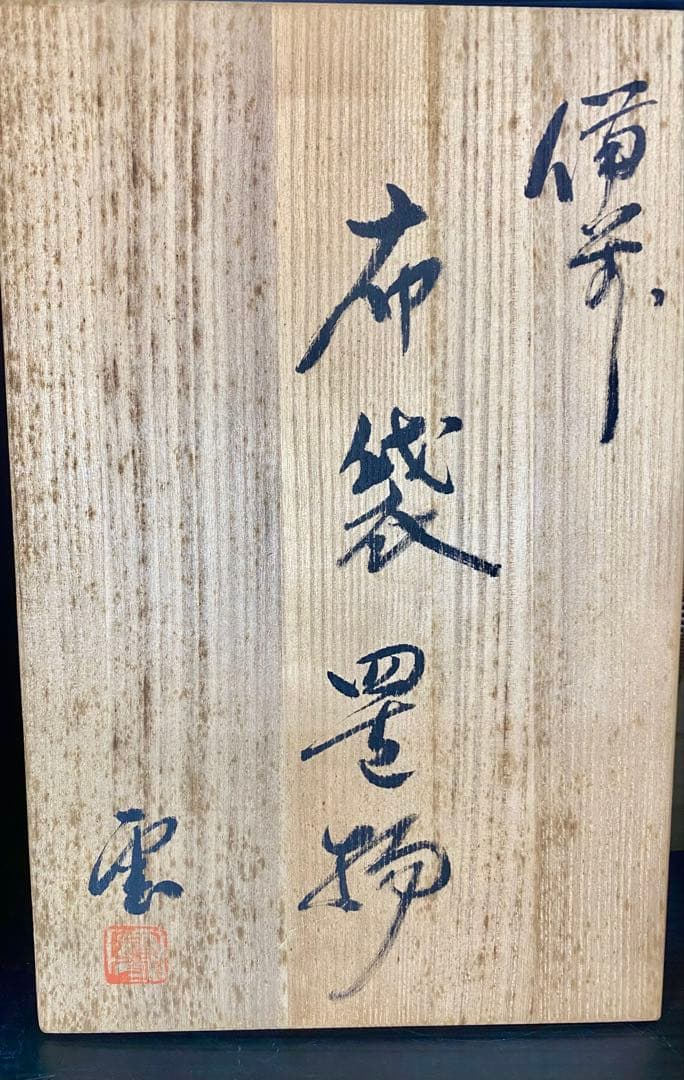 備前
布袋置物
雲